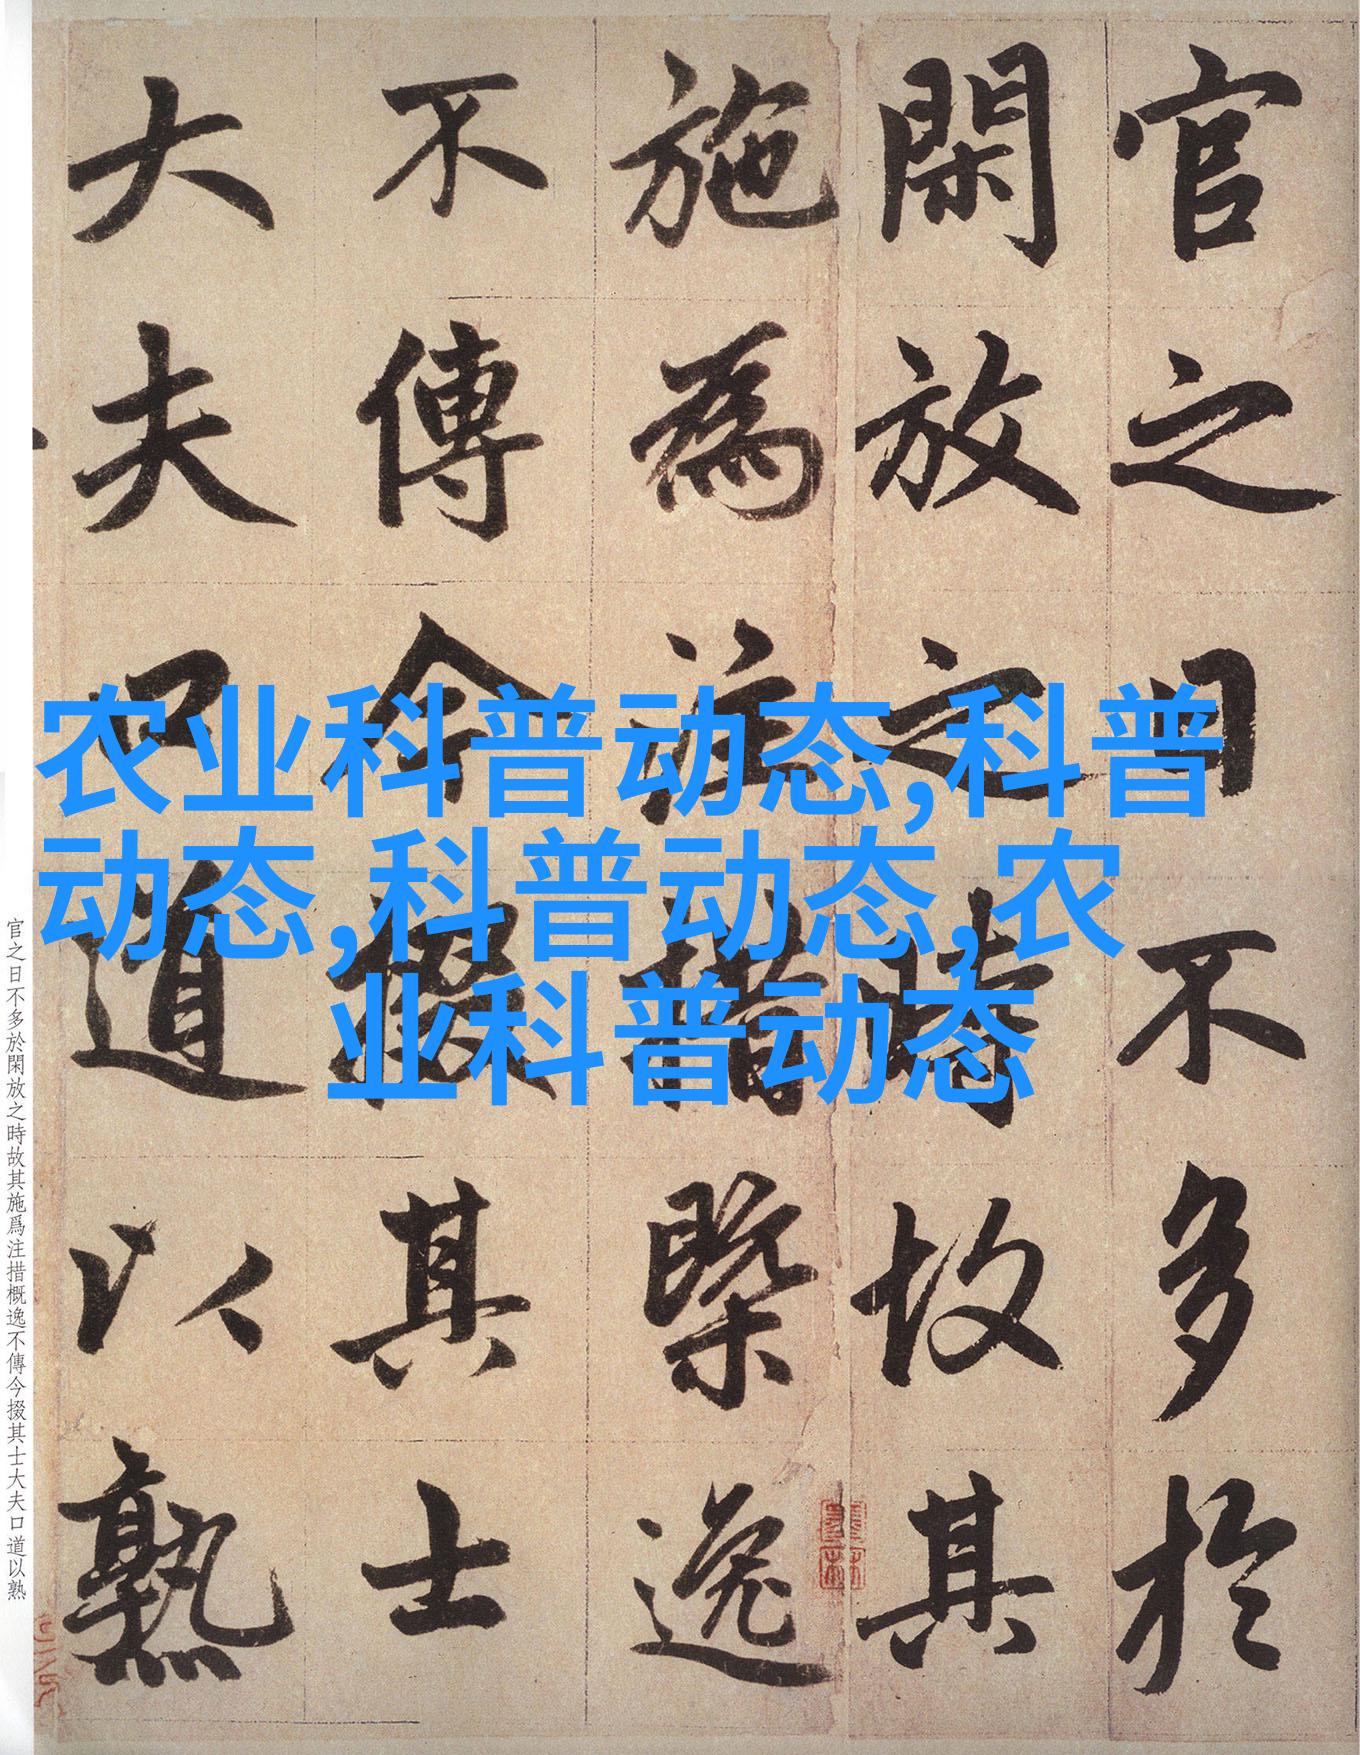 官之日不多於
閑放之時故其
施為注措槩逸
不傳今掇其士
大夫口道以熟
农业科普动态,科普
动态,科普动态,农
业科普动态
官之日不多於閑放之時故其施爲注措概逸不傳今掇其士大夫口道以熟